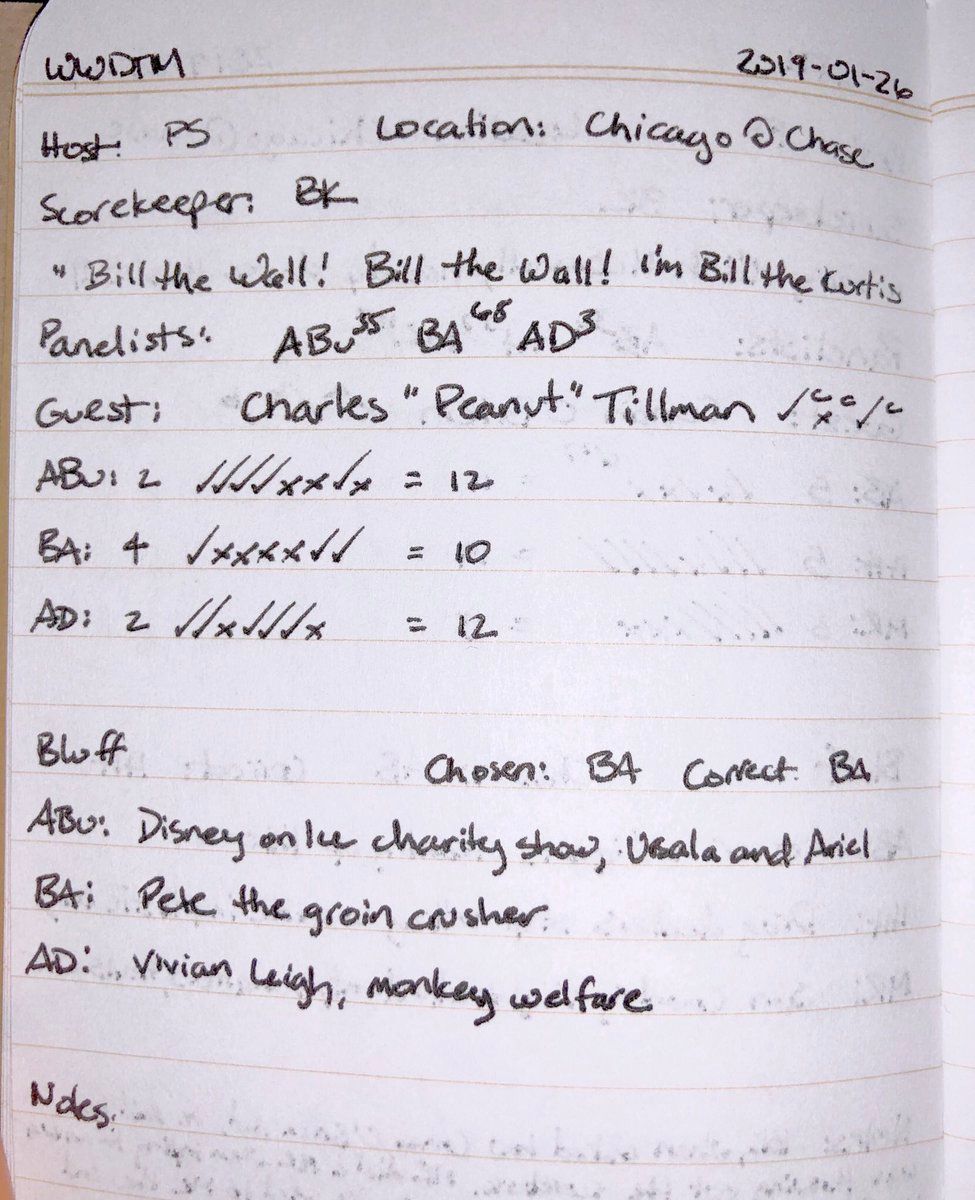 WWDTM 2019-01-26
Host: PS Location: Chicago @ Chase
Scorekeeper: BK
"Bill the Wall! Bill the Wall! I'm Bill the Kurtis
Panelists: ABu55 BA68 AD3
Guest: Charles "Peanut" Tillman ✓ c x c ✓ c
ABu: 2 ✓✓✓✓xx✓x = 12
BA: 4 ✓xxxx✓✓ = 10
AD: 2 ✓✓x✓✓✓x = 12
Bluff Chosen: BA Correct: BA
ABu: Disney on Ice charity show, Usala and Ariel
BA: Pete the groin crusher
AD: Vivian Leigh, monkey welfare
Notes: